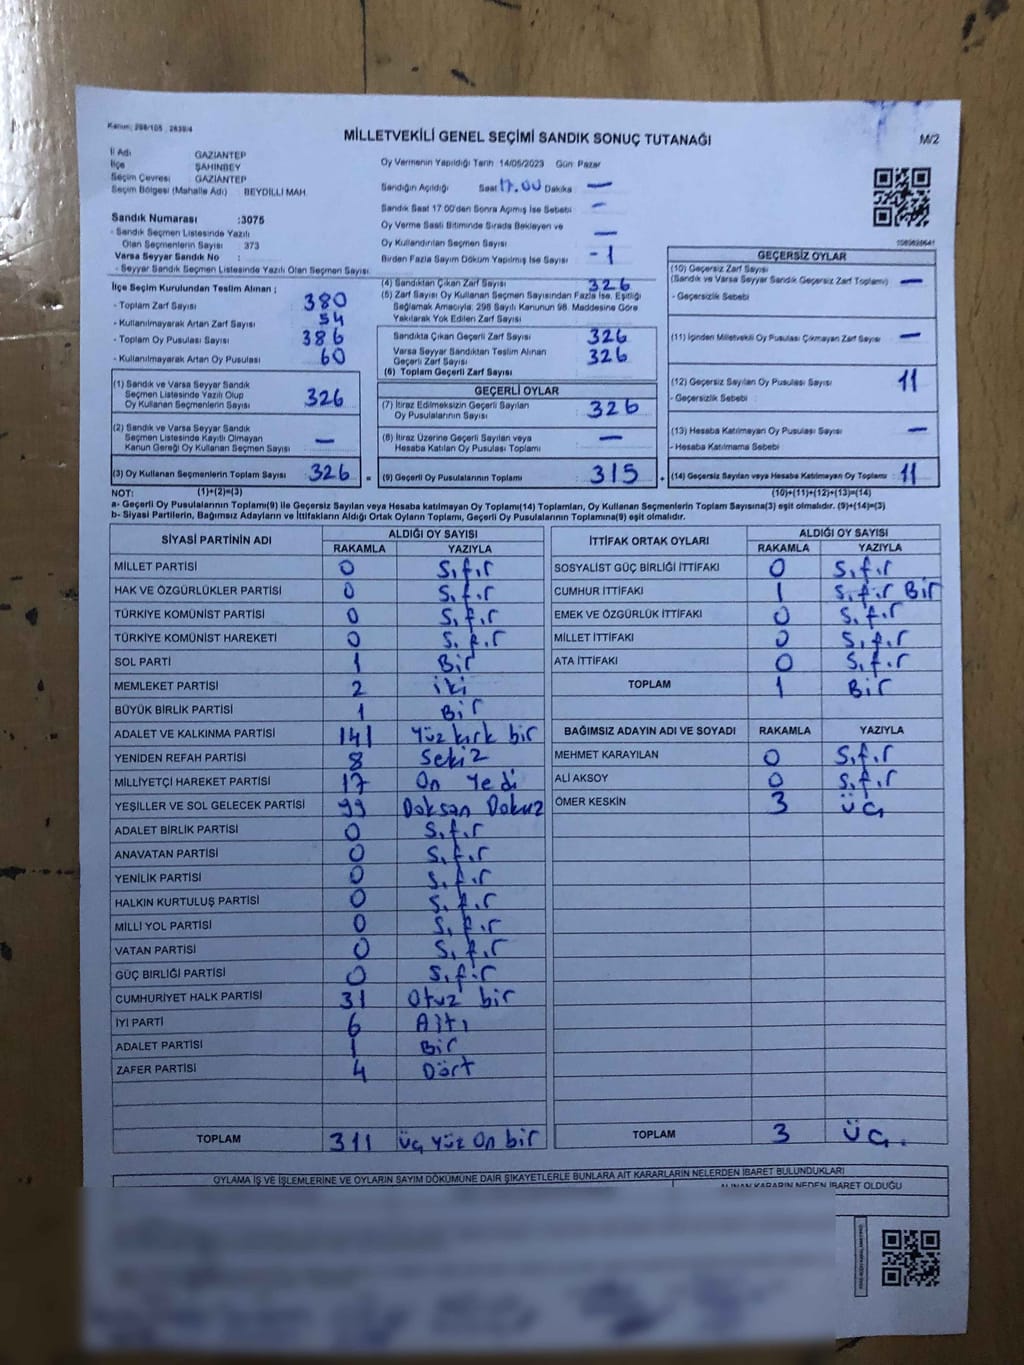 Kanun: 298/105 , 2839/4
MİLLETVEKİLİ GENEL SEÇİMİ SANDIK SONUÇ TUTANAĞI
M/2
İl Adı GAZİANTEP
İlçe ŞAHİNBEY
Seçim Çevresi GAZİANTEP
Seçim Bölgesi (Mahalle Adı) BEYDİLLİ MAH.
Oy Vermenin Yapıldığı Tarih 14/05/2023 Gün Pazar
Sandığın Açıldığı Saat 17.00 Dakika —
Sandık Saat 17:00'den Sonra Açımış İse Sebebi —
Oy Verme Saati Bitiminde Sırada Bekleyen ve
Oy Kullandırılan Seçmen Sayısı —
Birden Fazla Sayım Döküm Yapılmış İse Sayısı -1
Sandık Numarası :3075
- Sandık Seçmen Listesinde Yazılı
Olan Seçmenlerin Sayısı : 373
Varsa Seyyar Sandık No :
- Seyyar Sandık Seçmen Listesinde Yazılı Olan Seçmen Sayısı
İlçe Seçim Kurulundan Teslim Alınan ;
- Toplam Zarf Sayısı 380
- Kullanılmayarak Artan Zarf Sayısı 54
- Toplam Oy Pusulası Sayısı 386
- Kullanılmayarak Artan Oy Pusulası 60
(1) Sandık ve Varsa Seyyar Sandık
Seçmen Listesinde Yazılı Olup
Oy Kullanan Seçmenlerin Sayısı 326
(2) Sandık ve Varsa Seyyar Sandık
Seçmen Listesinde Kayıtlı Olmayan
Kanun Gereği Oy Kullanan Seçmen Sayısı —
(3) Oy Kullanan Seçmenlerin Toplam Sayısı 326 =
(4) Sandıktan Çıkan Zarf Sayısı 326
(5) Zarf Sayısı Oy Kullanan Seçmen Sayısından Fazla İse, Eşitliği
Sağlamak Amacıyla; 298 Sayılı Kanunun 98. Maddesine Göre
Yakılarak Yok Edilen Zarf Sayısı
Sandıkta Çıkan Geçerli Zarf Sayısı 326
Varsa Seyyar Sandıktan Teslim Alınan
Geçerli Zarf Sayısı 326
(6) Toplam Geçerli Zarf Sayısı
GEÇERLİ OYLAR
(7) İtiraz Edilmeksizin Geçerli Sayılan
Oy Pusulalarının Sayısı : 326
(8) İtiraz Üzerine Geçerli Sayılan veya
Hesaba Katılan Oy Pusulası Toplamı —
(9) Geçerli Oy Pusulalarının Toplamı : 315 +
GEÇERSİZ OYLAR
(10) Geçersiz Zarf Sayısı
(Sandık ve Varsa Seyyar Sandık Geçersiz Zarf Toplamı) —
- Geçersizlik Sebebi
(11) İçinden Milletvekili Oy Pusulası Çıkmayan Zarf Sayısı —
(12) Geçersiz Sayılan Oy Pusulası Sayısı 11
- Geçersizlik Sebebi
(13) Hesaba Katılmayan Oy Pusulası Sayısı —
- Hesaba Katılmama Sebebi
(14) Geçersiz Sayılan veya Hesaba Katılmayan Oy Toplamı 11
NOT: (1)+(2)=(3) (10)+(11)+(12)+(13)=(14)
a- Geçerli Oy Pusulalarının Toplamı(9) ile Geçersiz Sayılan veya Hesaba katılmayan Oy Toplamı(14) Toplamları, Oy Kullanan Seçmenlerin Toplam Sayısına(3) eşit olmalıdır. (9)+(14)=(3)
b- Siyasi Partilerin, Bağımsız Adayların ve İttifakların Aldığı Ortak Oyların Toplamı, Geçerli Oy Pusulalarının Toplamına(9) eşit olmalıdır.
SİYASİ PARTİNİN ADI ALDIĞI OY SAYISI
RAKAMLA YAZIYLA
MİLLET PARTİSİ 0 Sıfır
HAK VE ÖZGÜRLÜKLER PARTİSİ 0 Sıfır
TÜRKİYE KOMÜNİST PARTİSİ 0 Sıfır
TÜRKİYE KOMÜNİST HAREKETİ 0 Sıfır
SOL PARTİ 1 Bir
MEMLEKET PARTİSİ 2 iki
BÜYÜK BİRLİK PARTİSİ 1 Bir
ADALET VE KALKINMA PARTİSİ 141 Yüz kırk bir
YENİDEN REFAH PARTİSİ 8 Sekiz
MİLLİYETÇİ HAREKET PARTİSİ 17 On Yedi
YEŞİLLER VE SOL GELECEK PARTİSİ 99 Doksan Dokuz
ADALET BİRLİK PARTİSİ 0 Sıfır
ANAVATAN PARTİSİ 0 Sıfır
YENİLİK PARTİSİ 0 Sıfır
HALKIN KURTULUŞ PARTİSİ 0 Sıfır
MİLLİ YOL PARTİSİ 0 Sıfır
VATAN PARTİSİ 0 Sıfır
GÜÇ BİRLİĞİ PARTİSİ 0 Sıfır
CUMHURİYET HALK PARTİSİ 31 Otuz bir
İYİ PARTİ 6 Altı
ADALET PARTİSİ 1 Bir
ZAFER PARTİSİ 4 Dört
TOPLAM 311 Üç Yüz On bir
İTTİFAK ORTAK OYLARI ALDIĞI OY SAYISI
RAKAMLA YAZIYLA
SOSYALİST GÜÇ BİRLİĞİ İTTİFAKI 0 Sıfır
CUMHUR İTTİFAKI 1 Sıfır Bir
EMEK VE ÖZGÜRLÜK İTTİFAKI 0 Sıfır
MİLLET İTTİFAKI 0 Sıfır
ATA İTTİFAKI 0 Sıfır
TOPLAM 1 Bir
BAĞIMSIZ ADAYIN ADI VE SOYADI RAKAMLA YAZIYLA
MEHMET KARAYILAN 0 Sıfır
ALİ AKSOY 0 Sıfır
ÖMER KESKİN 3 Üç
TOPLAM 3 Üç.
OYLAMA İŞ VE İŞLEMLERİNE VE OYLARIN SAYIM DÖKÜMÜNE DAİR ŞİKAYETLERLE BUNLARA AİT KARARLARIN NELERDEN İBARET BULUNDUKLARI
ALINAN KARARIN NEDEN İBARET OLDUĞU